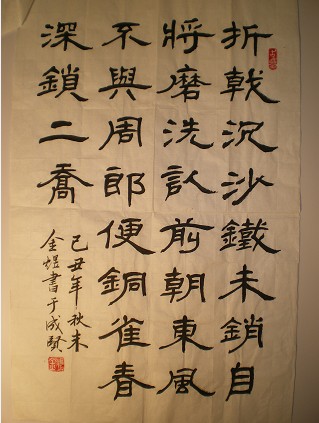 折戟沉沙鐵未銷自
將磨洗認前朝東風
不與周郎便銅雀春
深鎖二喬
己丑年秋末
金煜書于成賢